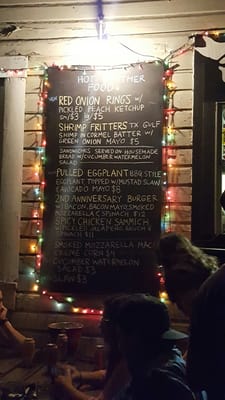 HOT
FOOD
RED ONION RINGS W/
PICKLED PEACH KETCHUP
SM/$3 $5
SHRIMP FRITTERS TX GULF
SHIMP IN CORMEL BATTER W/
GREEN ONION MAYO $5
SANDWICHES SERVED ON HOUSEMADE
BREAD W/CUCUMBER WATERMELON
SALAD
PULLED EGGPLANT BBQ STYLE
EGGPLANT TOPPED W/MUSTARD SLAW
& AVOCADO MAYO $8
2ND ANNIVERSARY BURGER
W/BACON, BACON MAYO, SMOKED
MOZZARELLA & SPINACH $12
SPICY CHICKEN SAMMICH
W/PICKLED JALAPENO &
SPINACH $11
SMOKED MOZZARELLA MAC
CREME CORN $4
CUCUMBER WATERMELON
SALAD $3
SLAW $3